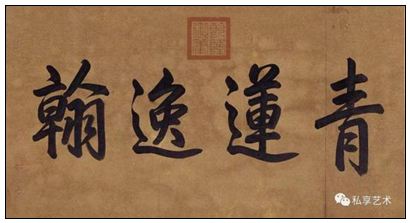 青蓮逸翰
私享艺术